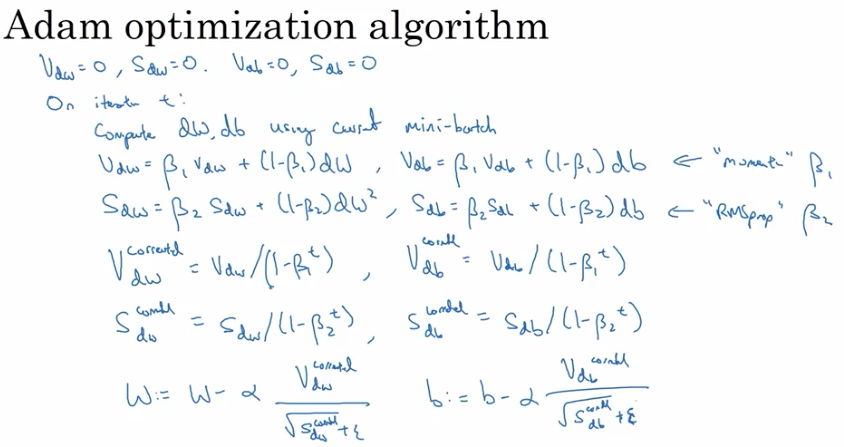 Adam optimization algorithm
V_dw = 0, S_dw = 0. V_db = 0, S_db = 0
On iteration t:
Compute dW, db using current mini-batch
V_dw = β₁ V_dw + (1-β₁) dW , V_db = β₁ V_db + (1-β₁) db ← "momentum" β₁
S_dw = β₂ S_dw + (1-β₂) dW² , S_db = β₂ S_db + (1-β₂) db ← "RMSprop" β₂
V_dw^corrected = V_dw/(1-β₁^t) , V_db^corrected = V_db/(1-β₁^t)
S_dw^corrected = S_dw/(1-β₂^t) , S_db^corrected = S_db/(1-β₂^t)
W := W - α V_dw^corrected / (√S_dw^corrected + ε) b := b - α V_db^corrected / (√S_db^corrected + ε)